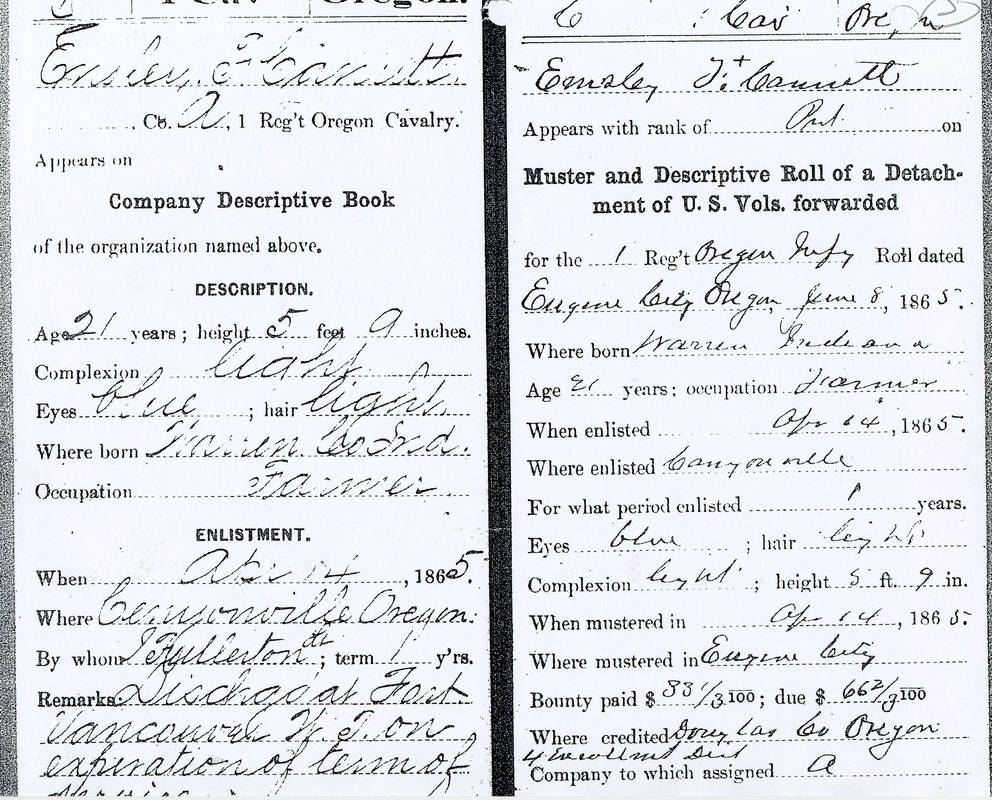 1 Cav. Oregon.
Emsley F. Cannutt.
Co. A, 1 Reg't Oregon Cavalry.
Appears on
Company Descriptive Book
of the organization named above.
DESCRIPTION.
Age 21 years; height 5 feet 9 inches.
Complexion light
Eyes blue ; hair light.
Where born Warren Co Ind.
Occupation Farmer.
ENLISTMENT.
When Apr 14 , 1865.
Where Canyonville Oregon.
By whom Fullerton ; term 1 y'rs.
Remarks: Dischgd at Fort
Vancouver W. T. on
expiration of term of
service.
C 1 Cav Oregon
Emsley F. + Cannutt
Appears with rank of Pvt. on
Muster and Descriptive Roll of a Detach-
ment of U. S. Vols. forwarded
for the 1 Reg't Oregon Infy Roll dated
Eugene City Oregon, June 8, 1865.
Where born Warren Indeana
Age 21 years; occupation Farmer
When enlisted Apr 14 , 1865.
Where enlisted Canyonville
For what period enlisted 1 years.
Eyes blue ; hair light
Complexion light ; height 5 ft. 9 in.
When mustered in Apr 14 , 1865.
Where mustered in Eugene City
Bounty paid $ 33 1/3 100; due $ 66 2/3 100
Where credited Douglas Co Oregon
4 Enrollmt Dist
Company to which assigned A